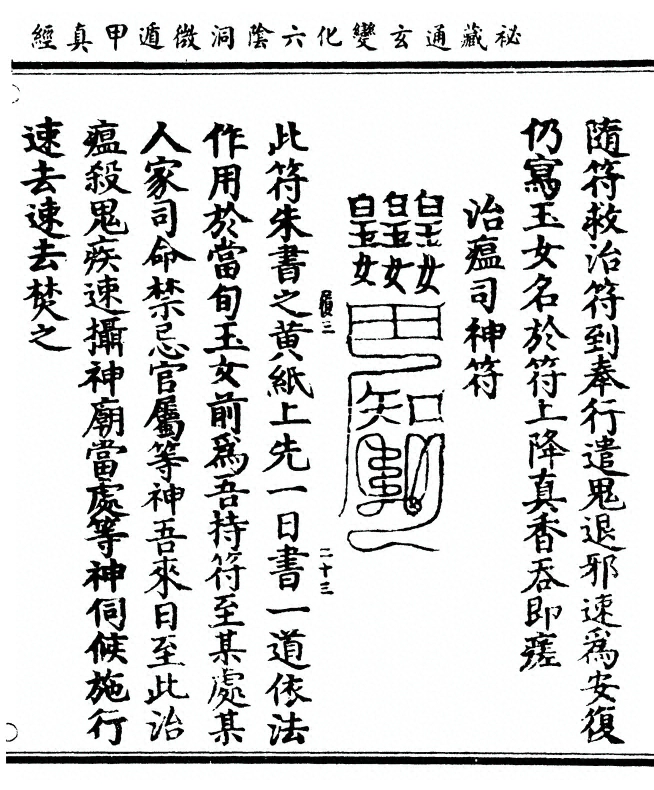 祕藏通玄變化六陰洞微遁甲真經
隨符救治符到奉行遣鬼退邪速爲安復
仍寫玉女名於符上降真香吞即瘥
治瘟司神符
履三
二十三
此符朱書之黄紙上先一日書一道依法
作用於當旬玉女前爲吾持符至某處某
人家司命禁忌官屬等神吾來日至此治
瘟殺鬼疾速攝神廟當處等神伺候施行
速去速去焚之